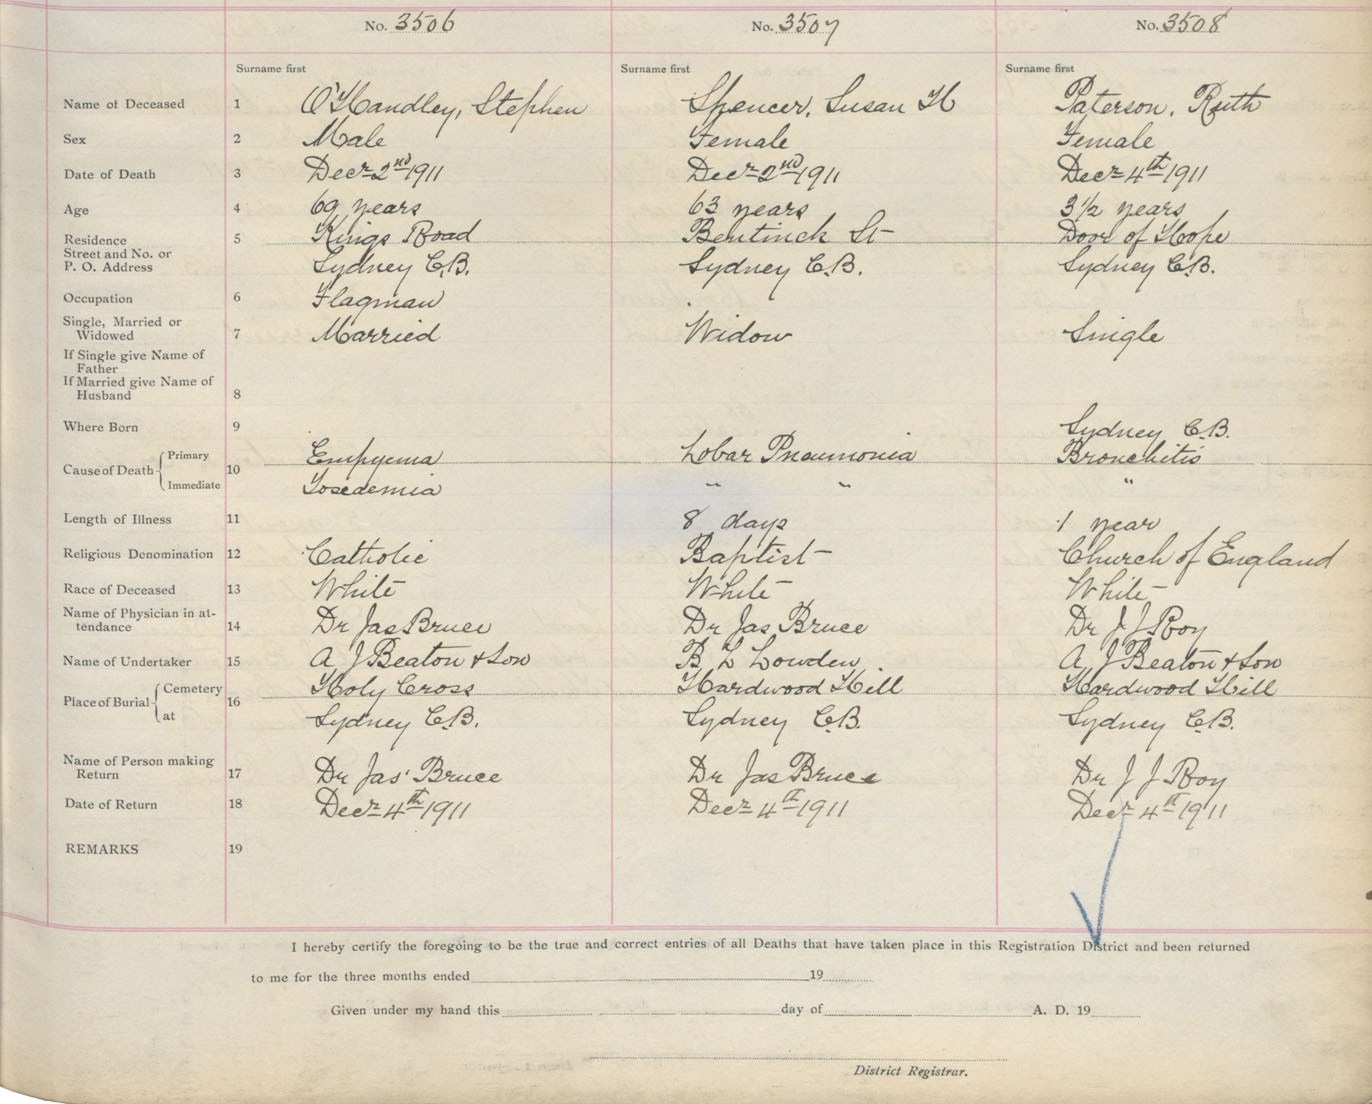 No. 3506 No. 3507 No. 3508
Surname first Surname first Surname first
Name of Deceased 1 O'Handley, Stephen Spencer, Susan H Paterson, Ruth
Sex 2 Male Female Female
Date of Death 3 Decr 2nd 1911 Decr 2nd 1911 Decr 4th 1911
Age 4 69 years 63 years 3 1/2 years
Residence 5 Kings Road Bentinck St Door of Hope
Street and No. or
P. O. Address Sydney C.B. Sydney C.B. Sydney C.B.
Occupation 6 Flagman
Single, Married or
Widowed 7 Married Widow Single
If Single give Name of
Father
If Married give Name of
Husband 8
Where Born 9 Sydney C.B.
Primary Empyema Lobar Pneumonia Bronchitis
Cause of Death 10
Immediate " " "
Length of Illness 11 8 days 1 year
Religious Denomination 12 Catholic Baptist Church of England
Race of Deceased 13 White White White
Name of Physician in at-
tendance 14 Dr Jas Bruce Dr Jas Bruce Dr J J Roy
Name of Undertaker 15 A J Beaton & Son B L Lowden A J Beaton & Son
Cemetery Holy Cross Hardwood Hill Hardwood Hill
Place of Burial 16
at Sydney C.B. Sydney C.B. Sydney C.B.
Name of Person making
Return 17 Dr Jas Bruce Dr Jas Bruce Dr J J Roy
Date of Return 18 Decr 4th 1911 Decr 4th 1911 Decr 4th 1911
REMARKS 19
I hereby certify the foregoing to be the true and correct entries of all Deaths that have taken place in this Registration District and been returned
to me for the three months ended 19
Given under my hand this day of A. D. 19
District Registrar.